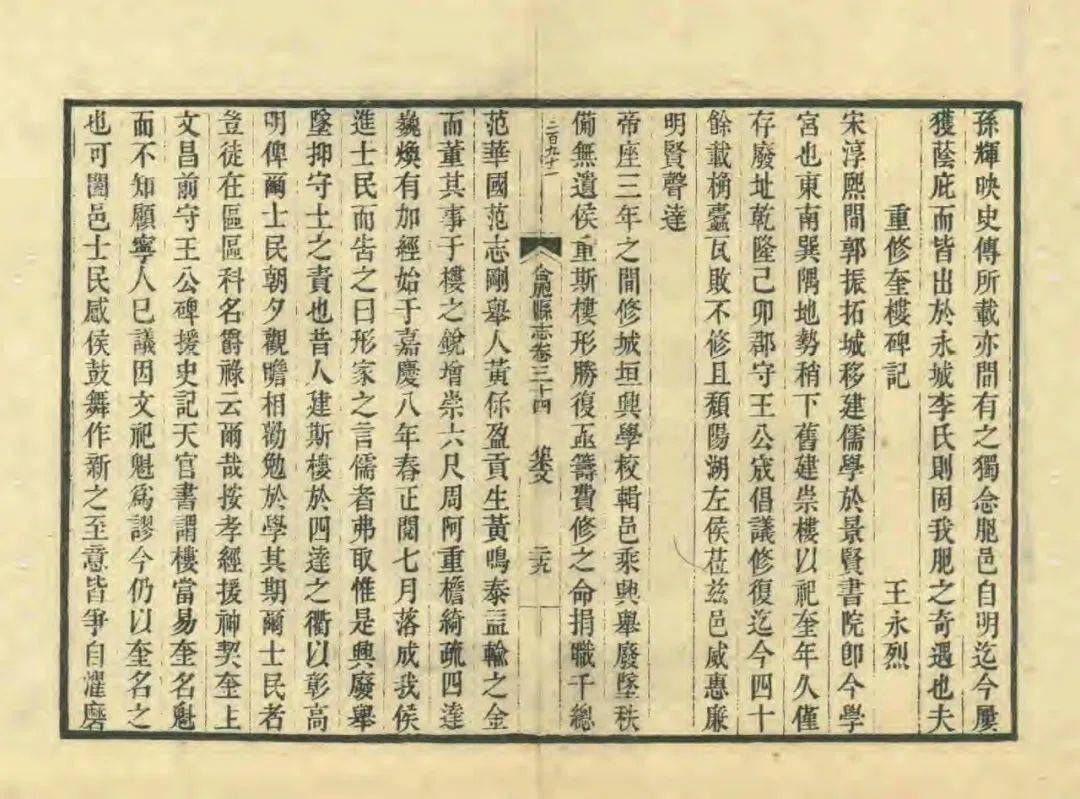 孫輝映史傳所載亦間有之獨念肥邑自明迄今屢
獲蔭庇而皆出於永城李氏則固我肥之奇遇也夫
重修奎樓碑記 王永烈
宋淳熙間郭振拓城移建儒學於景賢書院卽今學
宮也東南巽隅地勢稍下舊建崇樓以祀奎年久僅
存廢址乾隆己卯郡守王公宬倡議修復迄今四十
餘載桷蠹瓦敗不修且頹陽湖左侯莅兹邑威惠廉
明賢聲達
帝座三年之間修城垣興學校輯邑乘興舉廢墜秩
備無遺侯重斯樓形勝復亟籌費修之命捐職千總
二百九十二
合肥縣志卷三十四 集文 二十九
范華國范志剛舉人黃保盈貢生黃鳴泰諡輸之金
而董其事于樓之銳增崇六尺周阿重檐綺疏四達
巍煥有加經始于嘉慶八年春正閱七月落成我侯
進士民而告之曰形家之言儒者弗取惟是興廢舉
墜抑守土之責也昔人建斯樓於四達之衢以彰高
明俾爾士民朝夕觀瞻相勸勉於學其期爾士民者
豈徒在區區科名爵祿云爾哉按孝經援神契奎上
文昌前守王公碑援史記天官書謂樓當易奎名魁
而不知顧寧人已議因文祀魁爲謬今仍以奎名之
也可闔邑士民感侯鼓舞作新之至意皆爭自濯磨